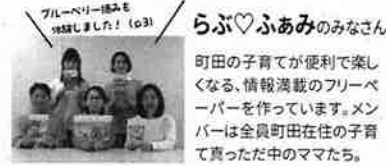 ブルーベリー摘みも
体験しました！（p3）
らぶ♡ふぁみのみなさん
町田の子育てが便利で楽し
くなる、情報満載のフリーペ
ーパーを作っています。メン
バーは全員町田在住の子育
て真っただ中のママたち。